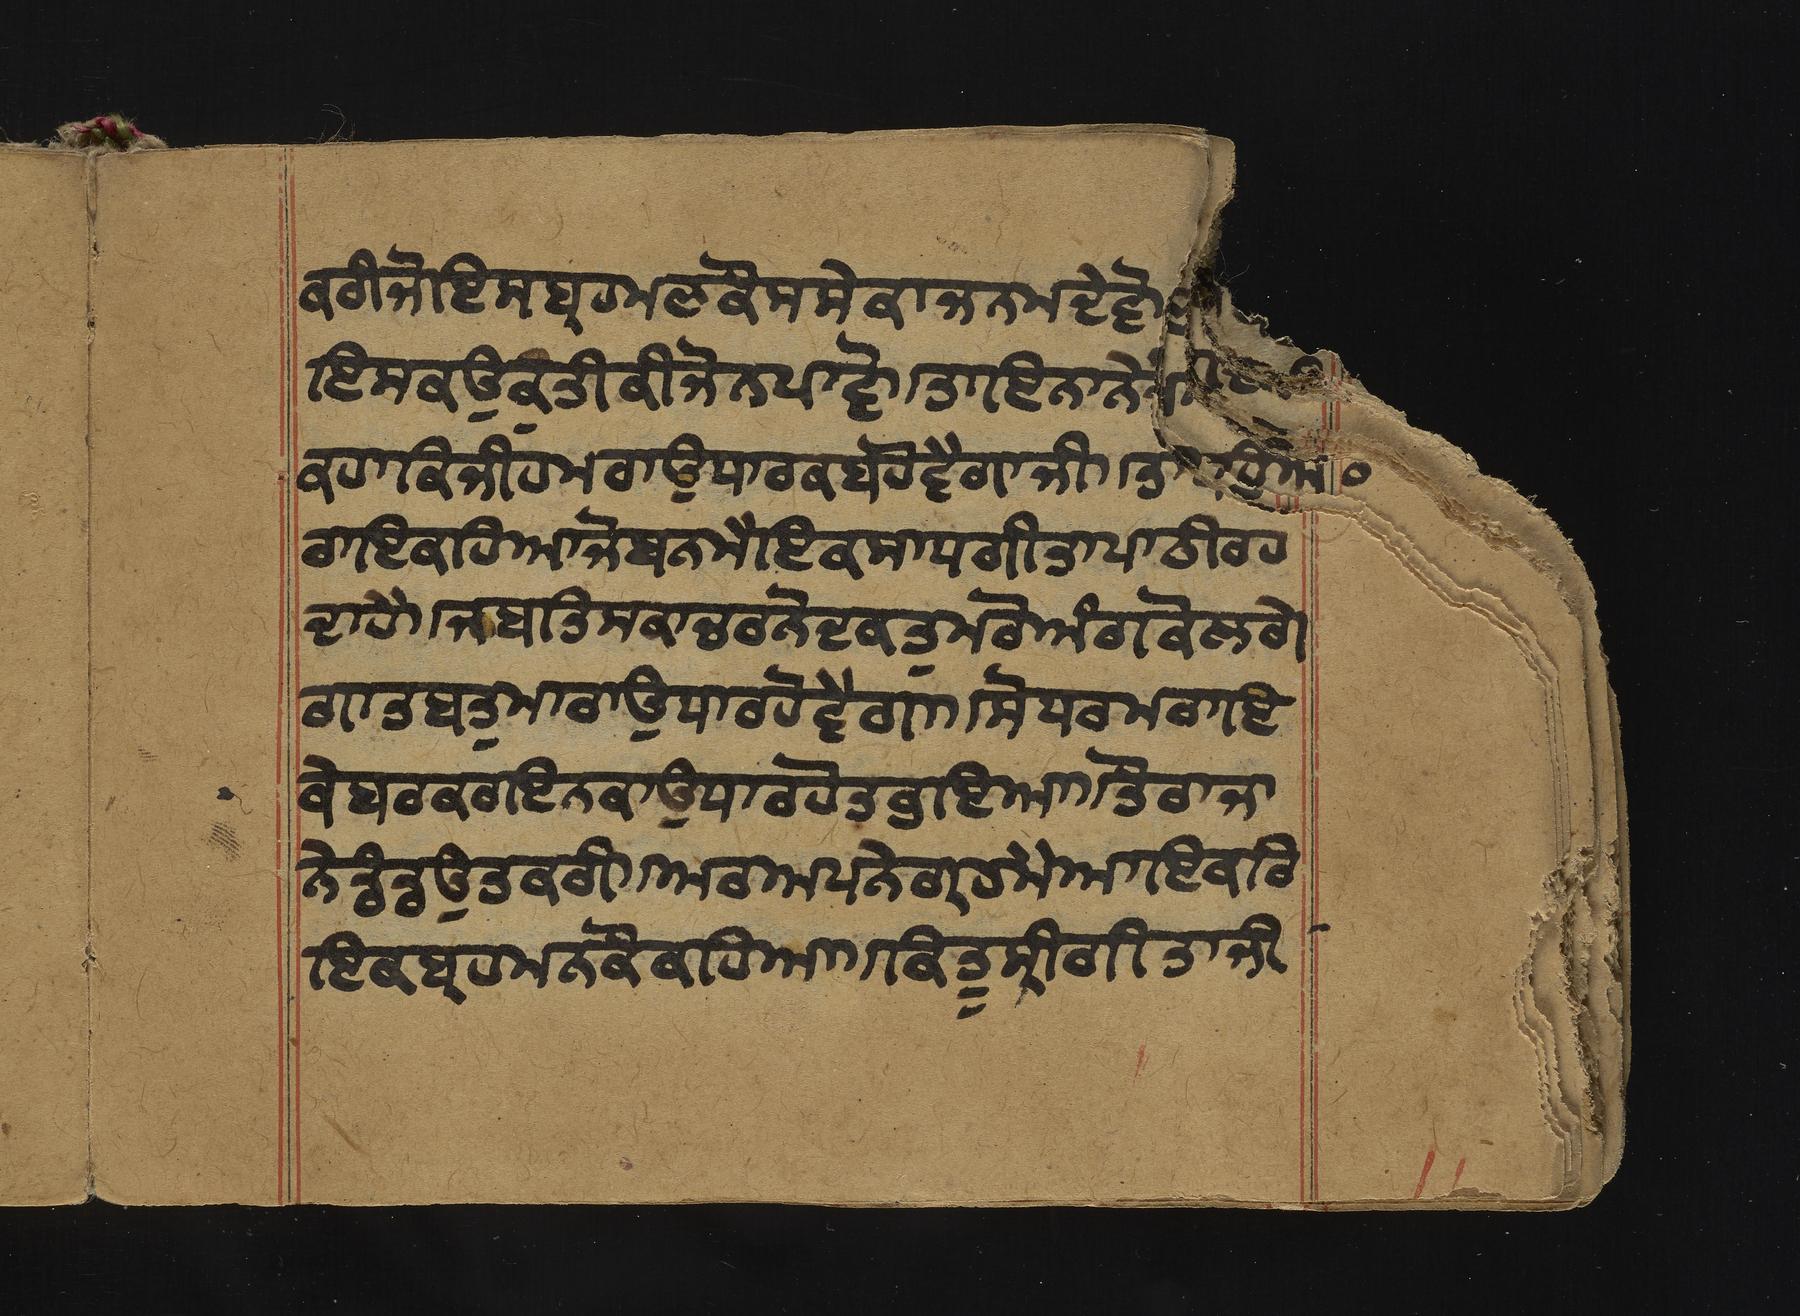 ਕਰੀਜੋਇਸਬ੍ਰਹਮਣਕੋਸਸੇਕਾਜਨਮਦੇਵੋ
ਇਸਕਉਕੁਤੀਕੀਜੋਨਪਾਵੋ।ਤਾਇਨਾਨੇ
ਕਹਾਕਿਜੀਹਮਰਾਉਧਾਰਕਬਹੋਵੈਗਾਜੀ।ਤਾ
ਰਾਇਕਹਿਆਜੋਬਨਮੈਇਕਸਾਧਗੀਤਾਪਾਠੀਰਹ
ਦਾਹੈ।ਜਬਤਿਸਕਾਚਰਨੋਦਕਤੁਮਰੋਅੰਗਕੋਲਗੇ
ਗਾਤਬਤੁਮਾਰਾਉਧਾਰਹੋਵੈਗਾ।ਸੋਧਰਮਰਾਇ
ਕੇਬਰਕਰਾਇਨਕਾਉਧਾਰਹੋਤਭਇਆ।ਤੋਰਾਜਾ
ਨੇਡੰਡਉਤਕਰੀ।ਅਰਅਪਨੇਗ੍ਰਹਮੇਆਇਕਰਿ
ਇਕਬ੍ਰਹਮਨਕੋਕਹਿਆ।ਕਿਤੁਸ੍ਰੀਗੀਤਾਜੀ